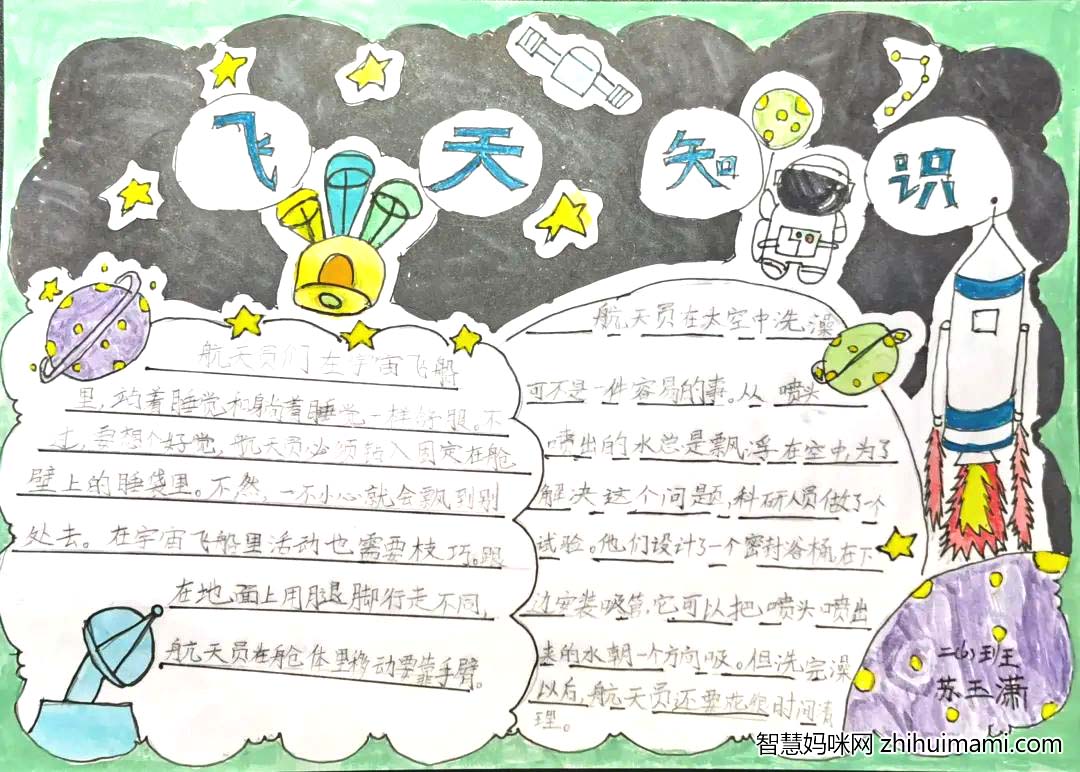 飞天知识
航天员们在宇宙飞船
里，站着睡觉和躺着睡觉一样舒服。不
过，要想个好觉，航天员必须钻入固定在舱
壁上的睡袋里。不然，一不小心就会飘到别
处去。在宇宙飞船里活动也需要技巧。跟
在地面上用腿脚行走不同，
航天员在舱体里移动要靠手臂。
航天员在太空中洗澡
可不是一件容易的事。从喷头
喷出的水总是飘浮在空中，为了
解决这个问题，科研人员做了个
试验。他们设计了一个密封浴桶，在下
边安装吸管，它可以把喷头喷出
来的水朝一个方向吸。但洗完澡
以后，航天员还要花很时间清
理。
二(6)班
苏玉潇
智慧妈咪网 zhihuimami.com